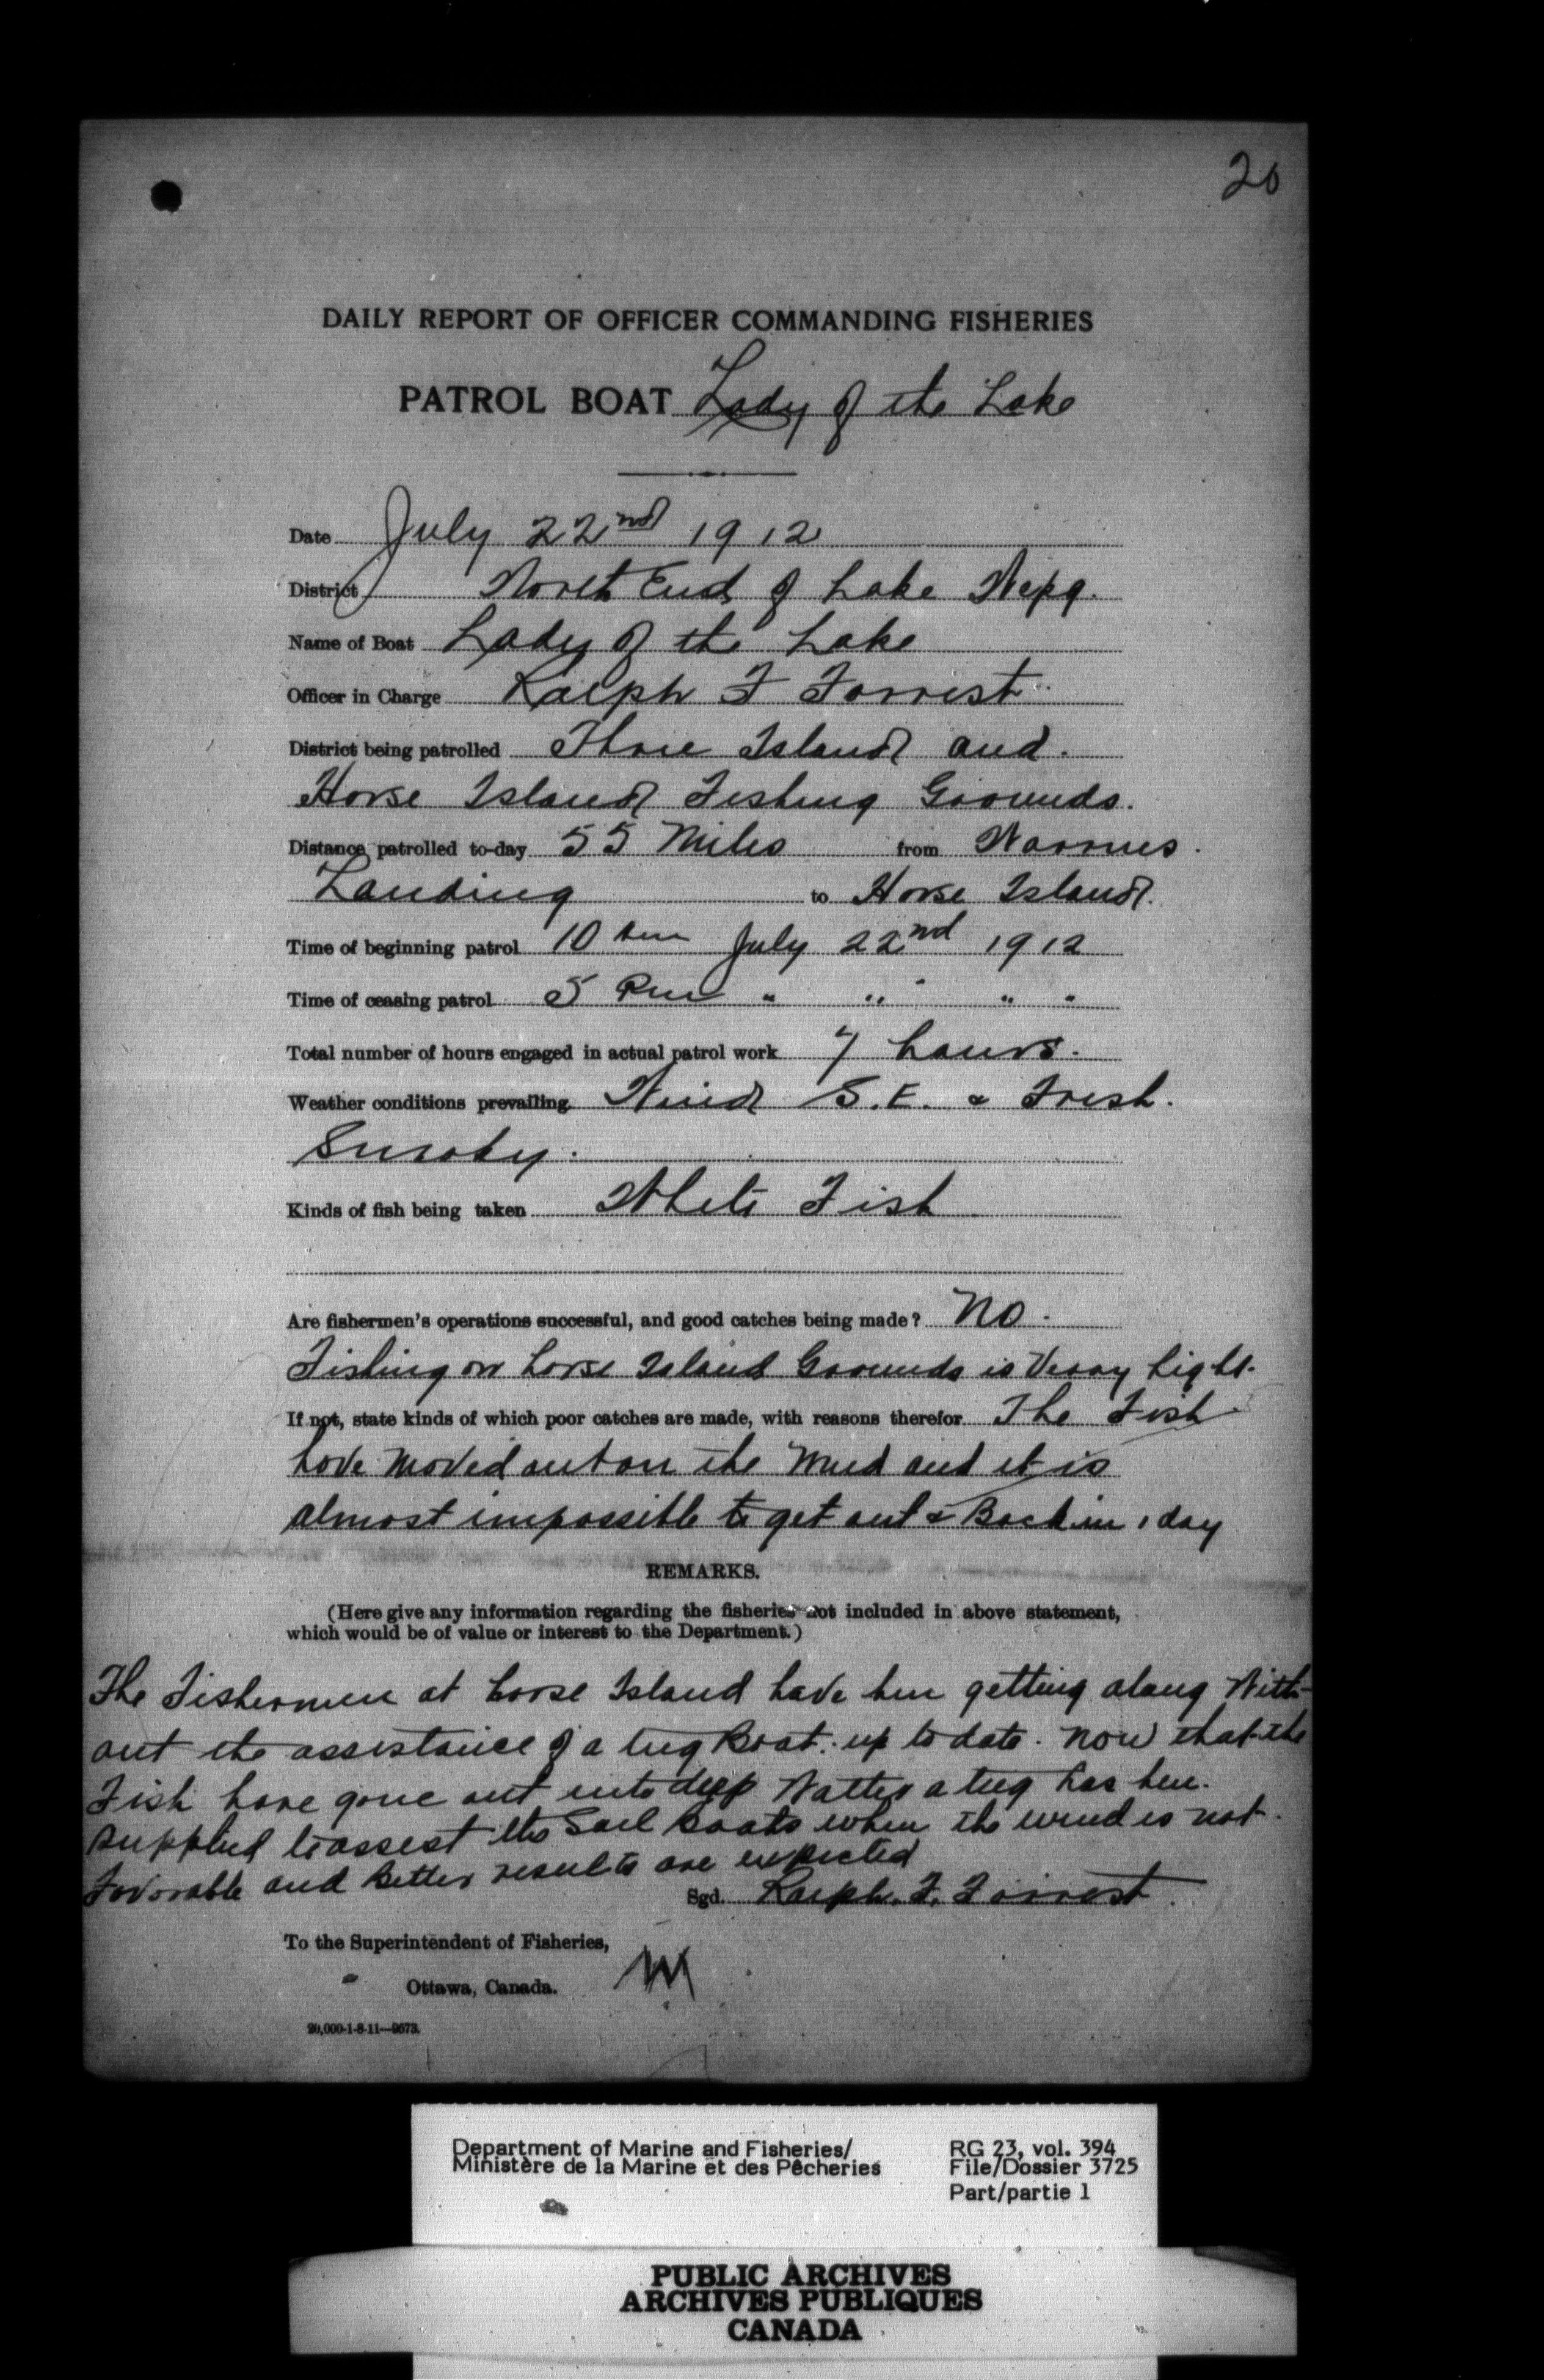 20
DAILY REPORT OF OFFICER COMMANDING FISHERIES
PATROL BOAT Lady of the Lake
Date July 22nd 1912
District North End of Lake Wepg.
Name of Boat Lady of the Lake
Officer in Charge Ralph F Forrest
District being patrolled Island and.
Horse Island Fishing Grounds.
Distance patrolled to-day 55 Miles from Warrens
Landing to Horse Island.
Time of beginning patrol 10 am July 22nd 1912
Time of ceasing patrol 5 Pm " " " "
Total number of hours engaged in actual patrol work 7 hours.
Weather conditions prevailing Wind S.E. & Fresh.
Smoky.
Kinds of fish being taken White Fish
Are fishermen's operations successful, and good catches being made? No.
Fishing on horse Island Grounds is Verry light.
If not, state kinds of which poor catches are made, with reasons therefor The Fish
have moved out on the Mud and it is
almost impossible to get out & Back in 1 day
REMARKS.
(Here give any information regarding the fisheries not included in above statement,
which would be of value or interest to the Department.)
The Fishermen at horse Island have ben getting along With-
out the assistance of a tug Boat. up to date. Now that the
Fish have gone out into deep Watter a tug has ben.
supplied to assest the Sail Boats when the wind is not
favorable and Better results are expected
Sgd. Ralph. F. Forrest
To the Superintendent of Fisheries,
Ottawa, Canada.
20,000-1-8-11—9573.
Department of Marine and Fisheries/
Ministère de la Marine et des Pêcheries
RG 23, vol. 394
File/Dossier 3725
Part/partie 1
PUBLIC ARCHIVES
ARCHIVES PUBLIQUES
CANADA